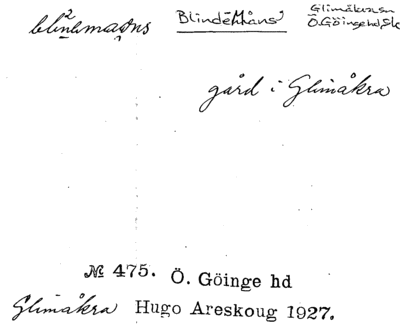 Glimåkra sn
Ö. Göinge hd, Sk
gård i Glimåkra
№ 475. Ö. Göinge hd
Glimåkra Hugo Areskoug 1927.